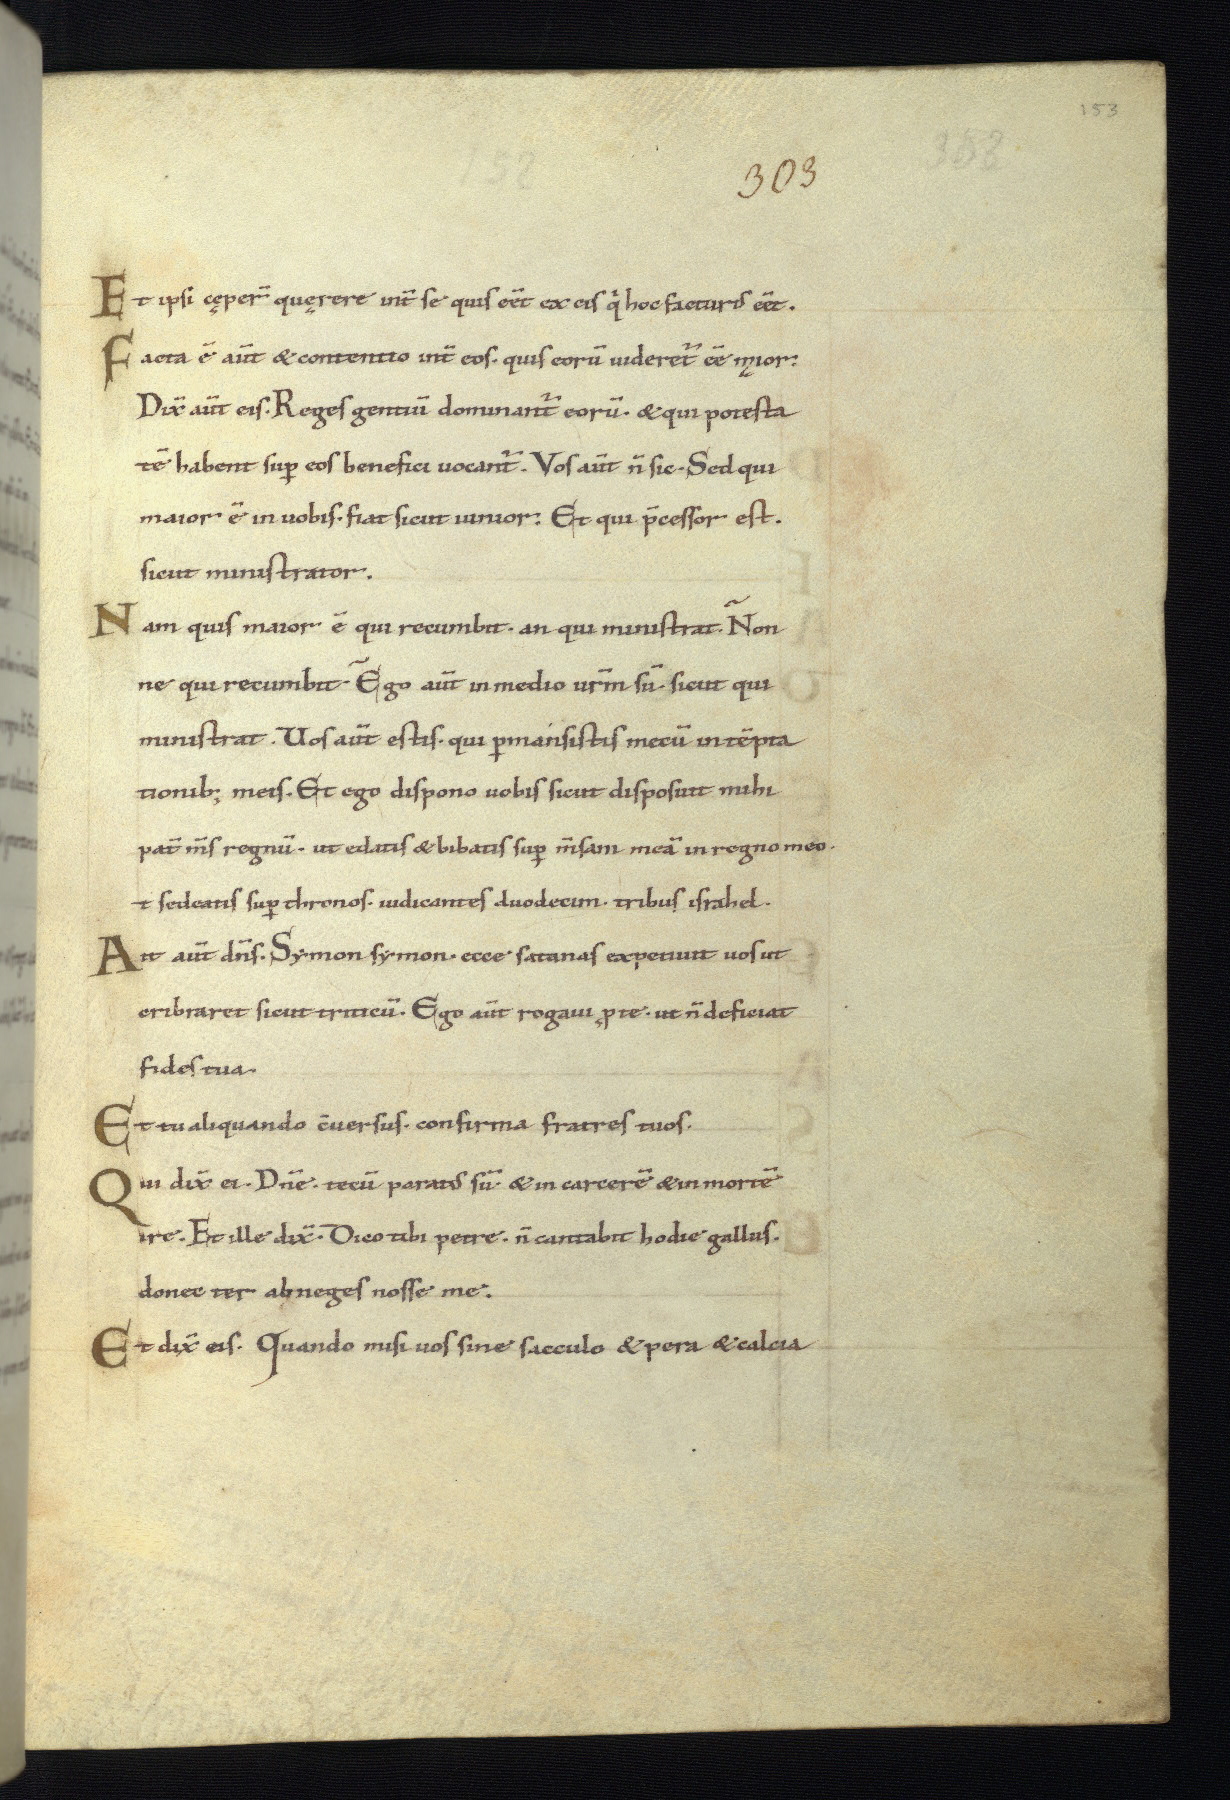 153
303
Et ipsi cęper̄ quęrere int̄ se quis eēt ex eis q̇ hoc factur᷒ eēt.
Facta ē aūt & contentio int̄ eos· quis eorū uideret᷑ eē maior:
Dix̄ aūt eis· Reges gentiū dominant᷑ eorū· & qui potesta
tē habent sup̲ eos benefici uocant᷑· Vos aūt n̄ sic· Sed qui
maior ē in uobis· fiat sicut iunior: Et qui p̄cessor est·
sicut ministrator.
Nam quis maior ē qui recumbit· an qui ministrat· Non
ne qui recumbit· Ego aūt in medio ur̄m sū· sicut qui
ministrat· Uos aūt estis· qui ꝑmansistis mecū in tēpta
tionib; meis· Et ego dispono uobis sicut disposuit mihi
pat̄ m̄s regnū· ut edatis & bibatis suꝑ m̄sam meā in regno meo·
t sedeatis suꝑ thronos· iudicantes duodecim· tribus israhel·
Ait aūt dn̄s· Symon symon· ecce satanas expetiuit uos ut
cribraret sicut triticū· Ego aūt rogaui ꝓ te· ut n̄ deficiat
fides tua·
Et tu aliquando c̄uersus· confirma fratres tuos·
Qui dix̄ ei· Dn̄e· tecū parat᷒ sū· & in carcerē & in mortē
ire· Et ille dix̄· Dico tibi petre· n̄ cantabit hodie gallus·
donec ter abneges nosse me·
Et dix̄ eis· Quando misi uos sine sacculo & pera & calcia